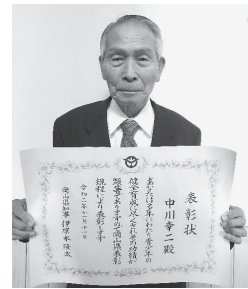 表彰状
中川幸一殿
あなたは多年にわたり青少年の
健全育成に尽くされその功績が
顕著でありますので岡山県表彰
規程により表彰します
令和二年十一月十一日
岡山県知事 伊原木隆太